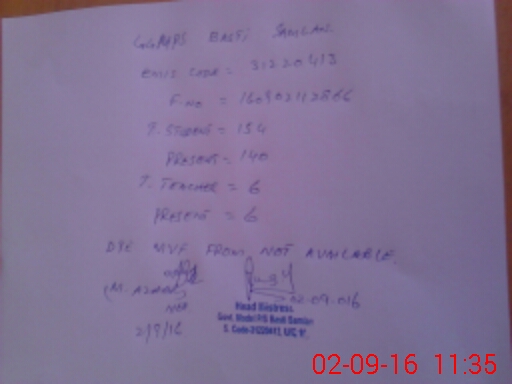 GGMPS BASTI SAMLAN
EMIS CODE = 31220413
F.NO = 160902112866
T. STUDENT = 154
PRESENT = 140
T. TEACHER = 6
PRESENT = 6
DUE MVF FROM NOT AVAILABLE.
02-09-016
2/9/16
Head Mistress.
Govt. Model P/S Basti Samlan
S. Code-31220413, U/C
02-09-16 11:35